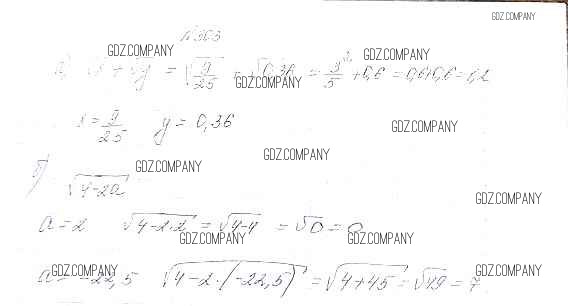 GDZ.COMPANY
№363
GDZ.COMPANY GDZ.COMPANY
а) √x + √y = √(9/25) + √0,36 = 3/5 + 0,6 = 0,6+0,6 = 1,2
GDZ.COMPANY
x = 9/25 y = 0,36
GDZ.COMPANY
GDZ.COMPANY
б) GDZ.COMPANY
√(4-2a)
GDZ.COMPANY
a = 2 √(4-2·2) = √(4-4) = √0 = 0
GDZ.COMPANY GDZ.COMPANY
a = -22,5 √(4-2·(-22,5)) = √(4+45) = √49 = 7
GDZ.COMPANY GDZ.COMPANY